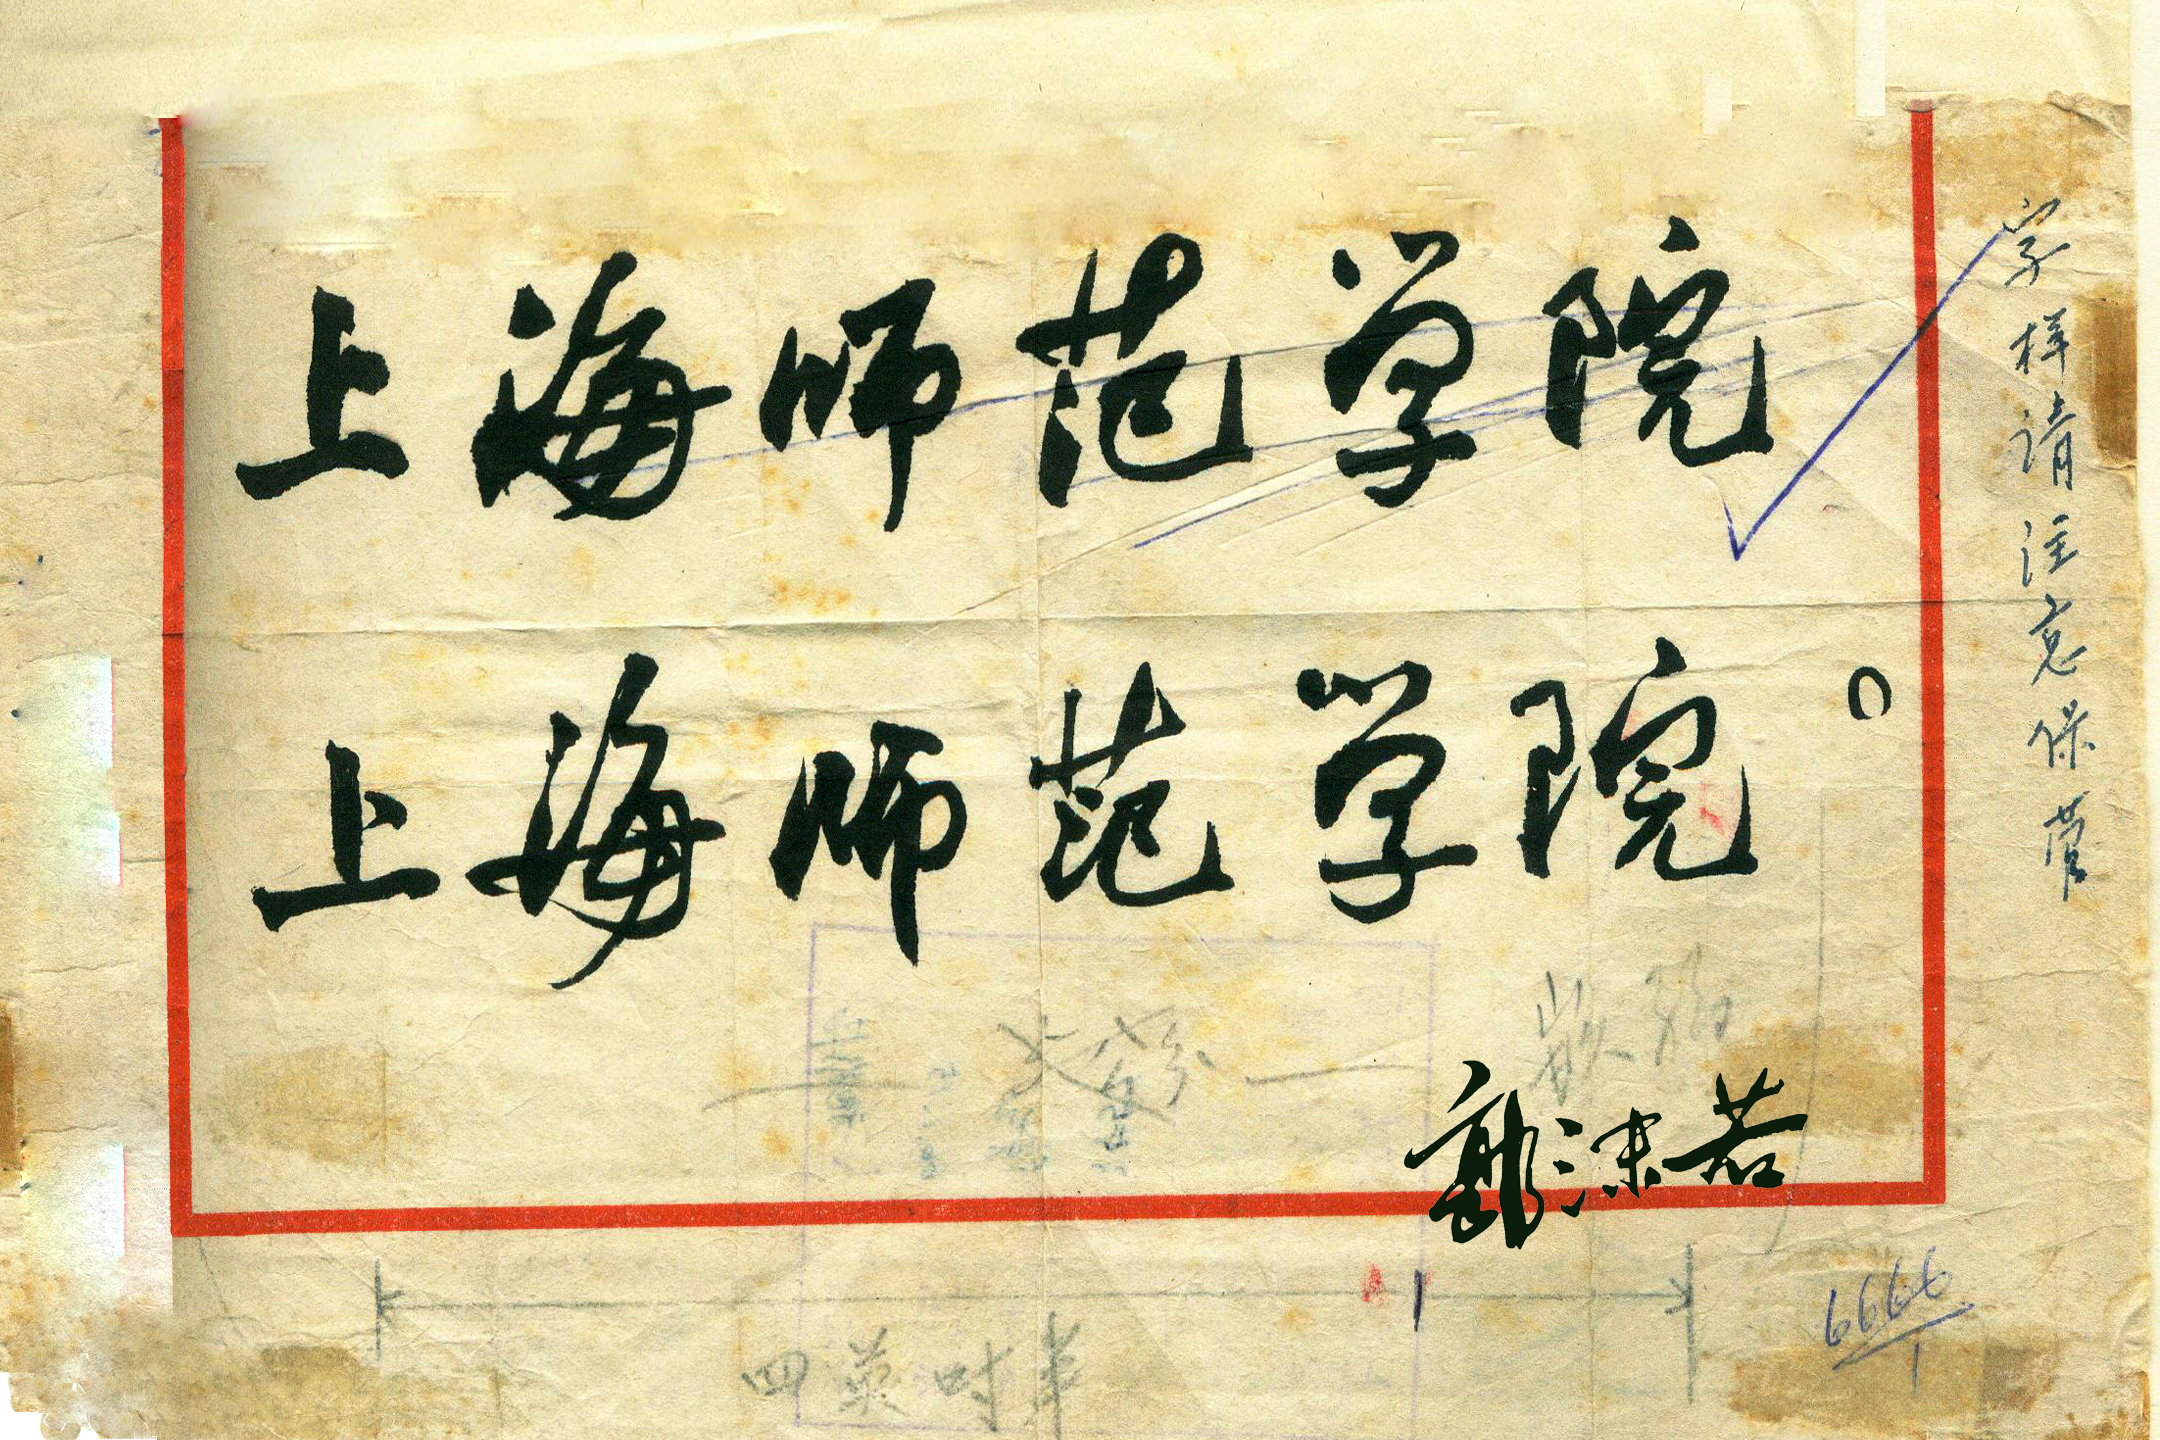 上海师范学院
上海师范学院
郭沫若
字样请注意保管
四英吋半
6666
1